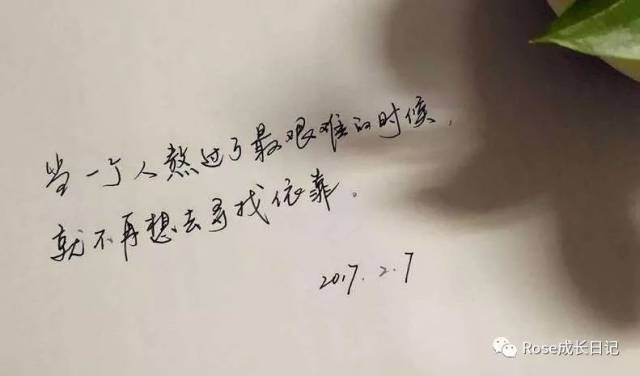 当一个人熬过了最艰难的时候，
就不再想去寻找依靠。
2017.2.7
Rose成长日记